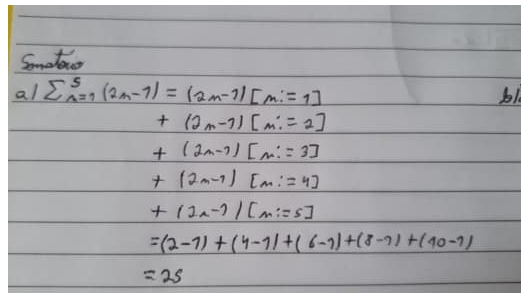 Somatório
a) ∑⁵ₙ₌₁ (2n-1) = (2n-1) [n:=1]
+ (2n-1) [n:=2]
+ (2n-1) [n:=3]
+ (2n-1) [n:=4]
+ (2n-1) [n:=5]
=(2-1) + (4-1) + (6-1) + (8-1) + (10-1)
= 25
b)